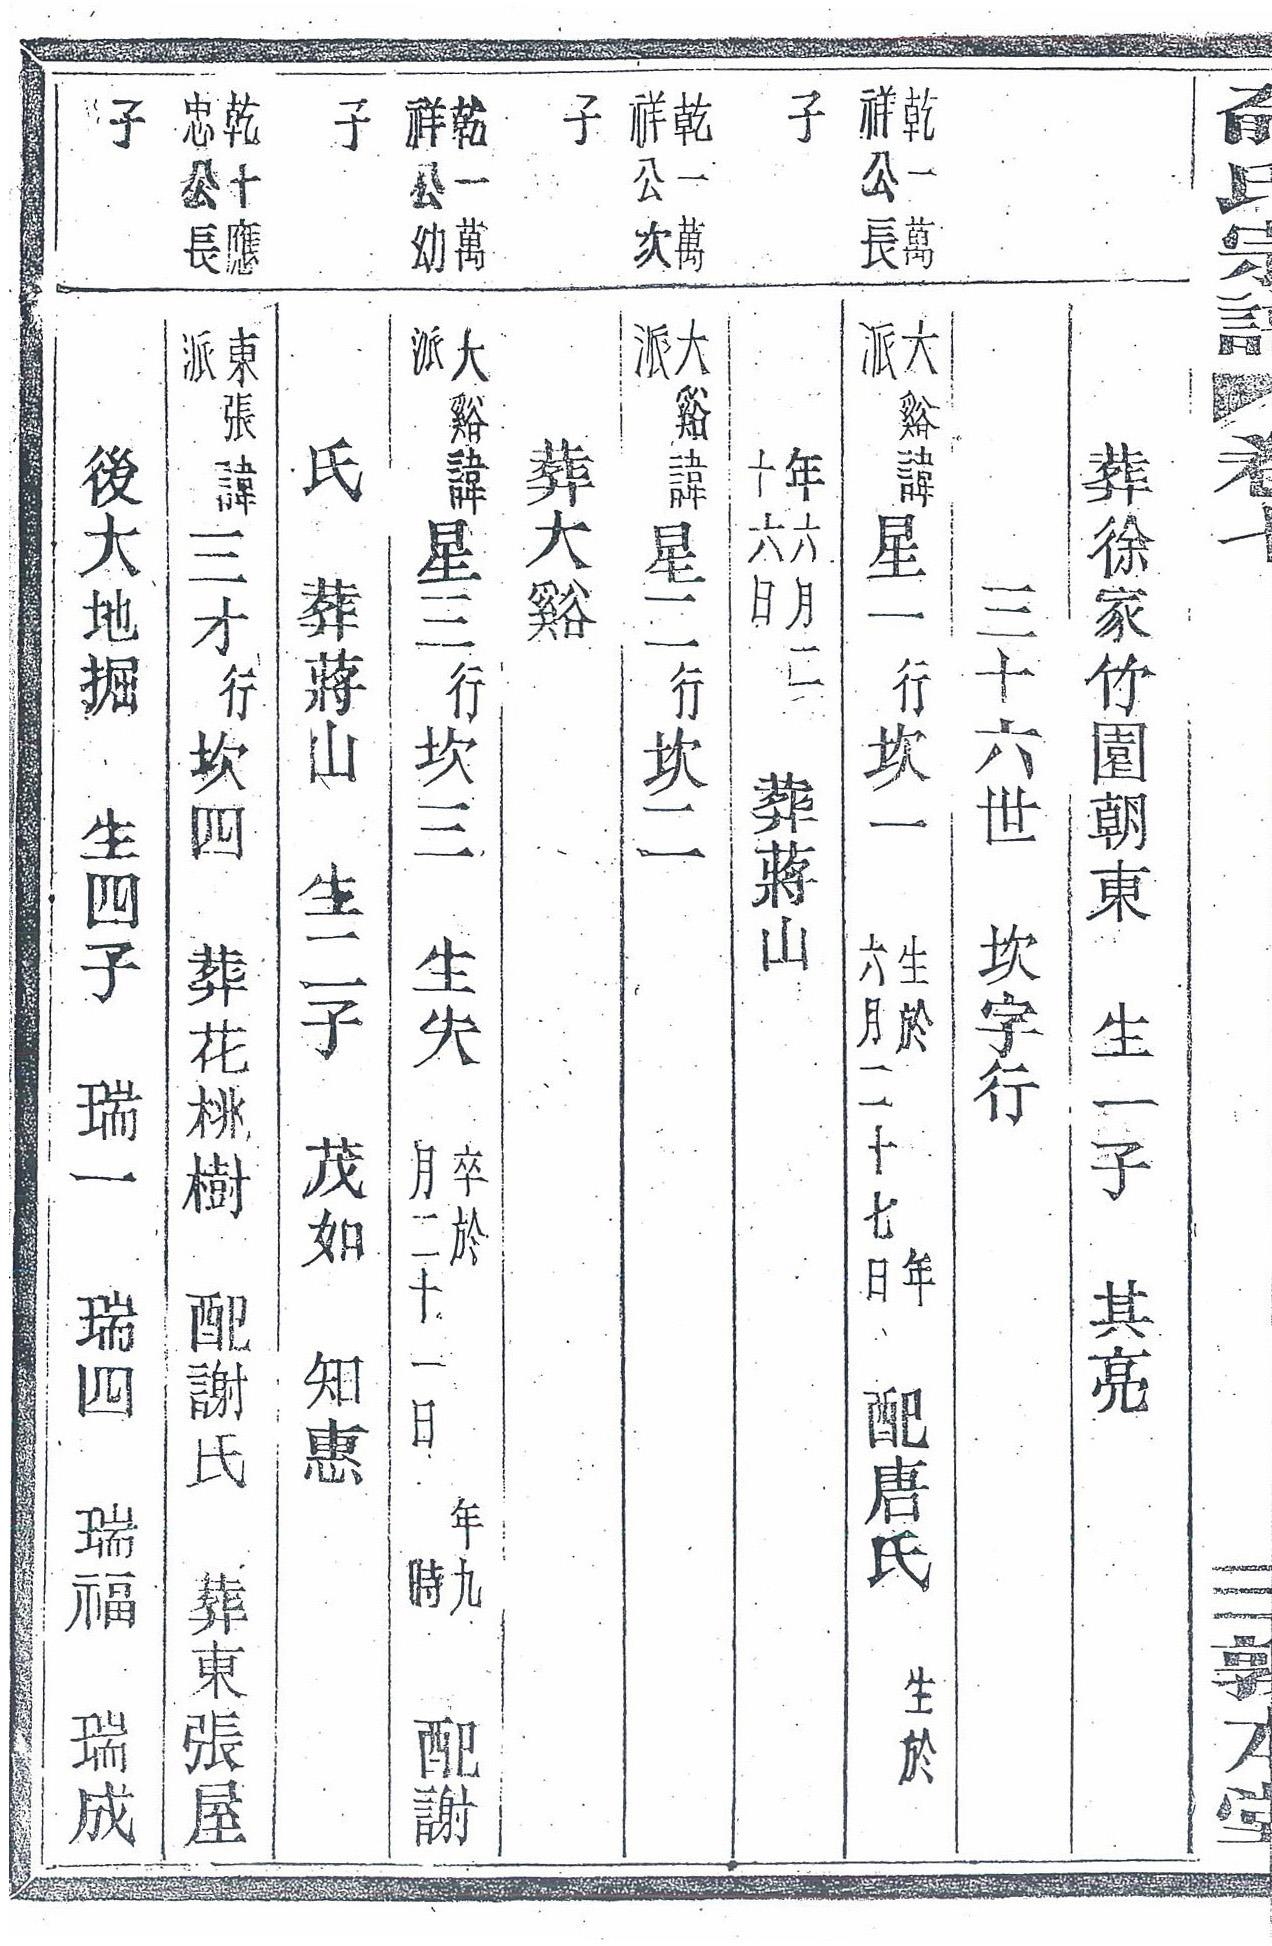 氏宗譜 卷七 三 敦本堂
葬徐家竹園朝東 生一子 其亮
三十六世 坎字行
乾一萬
祥公長
大谿派 諱星一 行坎一 生於 年六月二十七日 配唐氏 生於
子
年六月二十六日 葬蔣山
乾一萬
祥公次
大谿派 諱星二 行坎二
子
葬大谿
乾一萬
祥公幼
大谿派 諱星三 行坎三 生失 卒於 年九月二十一日 時 配謝
子
氏 葬蔣山 生二子 茂如 知惠
乾十應
忠公長
東張派 諱三才 行坎四 葬花桃樹 配謝氏 葬東張屋
子
後大地掘 生四子 瑞一 瑞四 瑞福 瑞成